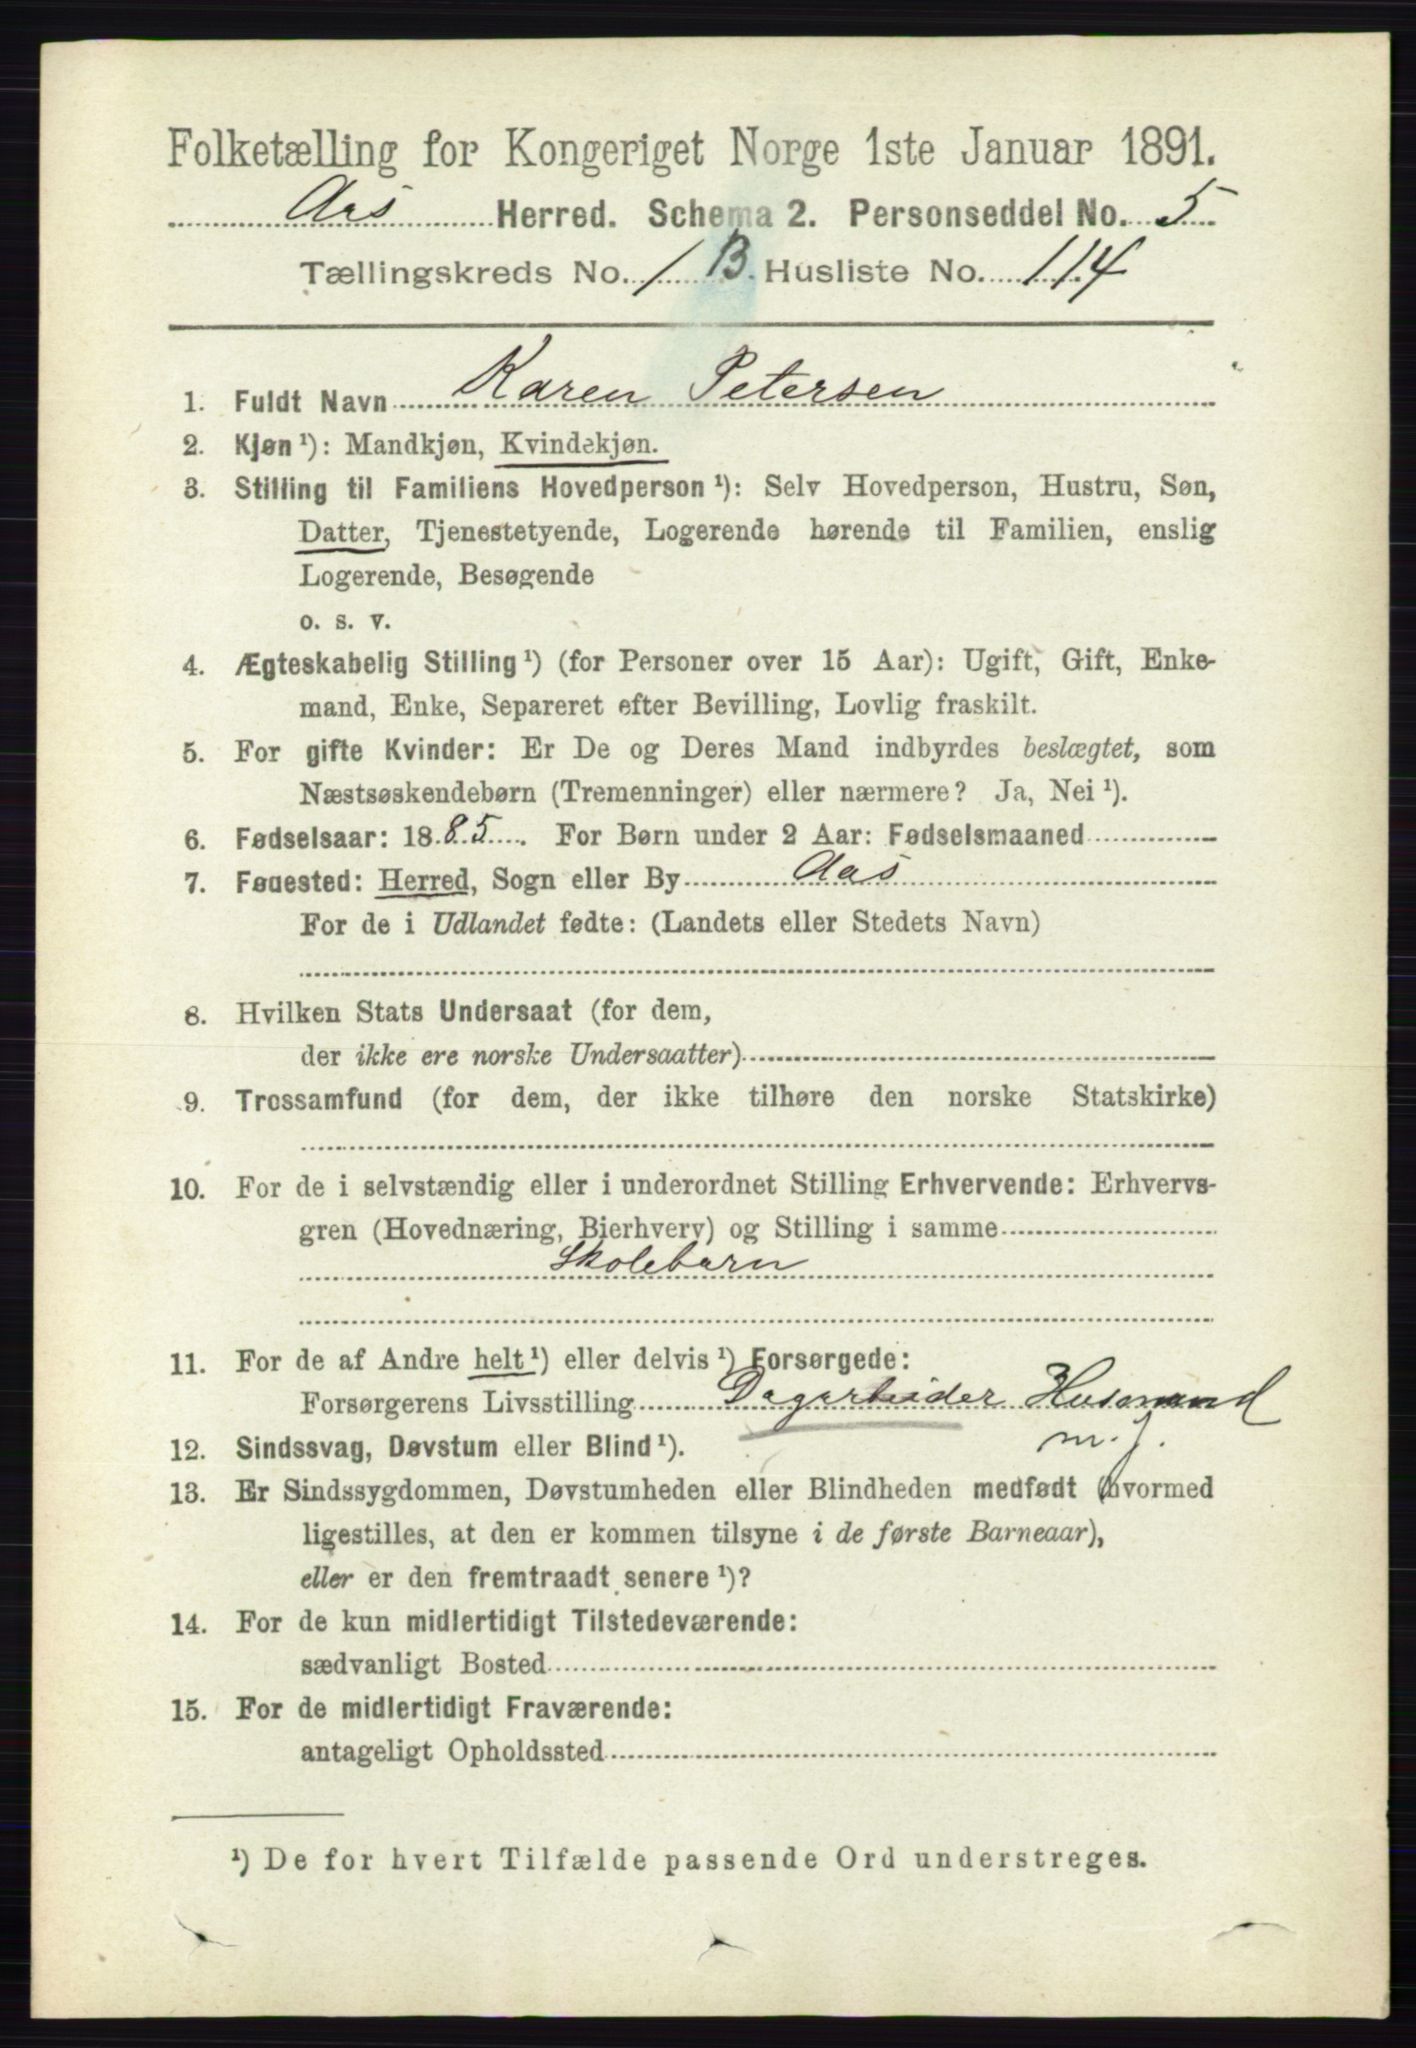 Folketælling for Kongeriget Norge 1ste Januar 1891.
Aas Herred. Schema 2. Personseddel No. 5
Tællingskreds No. 1 B. Husliste No. 114
1. Fuldt Navn Karen Petersen
2. Kjøn ¹): Mandkjøn, Kvindekjøn.
3. Stilling til Familiens Hovedperson ¹): Selv Hovedperson, Hustru, Søn,
Datter, Tjenestetyende, Logerende hørende til Familien, enslig
Logerende, Besøgende
o. s. v.
4. Ægteskabelig Stilling ¹) (for Personer over 15 Aar): Ugift, Gift, Enke-
mand, Enke, Separeret efter Bevilling, Lovlig fraskilt.
5. For gifte Kvinder: Er De og Deres Mand indbyrdes beslægtet, som
Næstsøskendebørn (Tremenninger) eller nærmere? Ja, Nei ¹).
6. Fødselsaar: 1885. For Børn under 2 Aar: Fødselsmaaned
7. Fødested: Herred, Sogn eller By Aas
For de i Udlandet fødte: (Landets eller Stedets Navn)
8. Hvilken Stats Undersaat (for dem,
der ikke ere norske Undersaatter)
9. Trossamfund (for dem, der ikke tilhøre den norske Statskirke)
10. For de i selvstændig eller i underordnet Stilling Erhvervende: Erhvervs-
gren (Hovednæring, Bierhverv) og Stilling i samme
Skolebarn
11. For de af Andre helt ¹) eller delvis ¹) Forsørgede:
Forsørgerens Livsstilling Dagarbeider Husmand
m. j.
12. Sindssvag, Døvstum eller Blind ¹).
13. Er Sindssygdommen, Døvstumheden eller Blindheden medfødt (hvormed
ligestilles, at den er kommen tilsyne i de første Barneaar),
eller er den fremtraadt senere ¹)?
14. For de kun midlertidigt Tilstedeværende:
sædvanligt Bosted
15. For de midlertidigt Fraværende:
antageligt Opholdssted
¹) De for hvert Tilfælde passende Ord understreges.